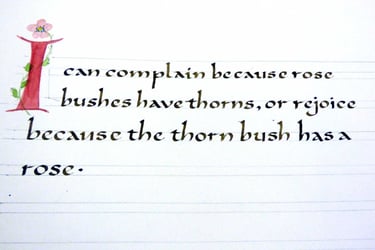 I can complain because rose
bushes have thorns, or rejoice
because the thorn bush has a
rose.